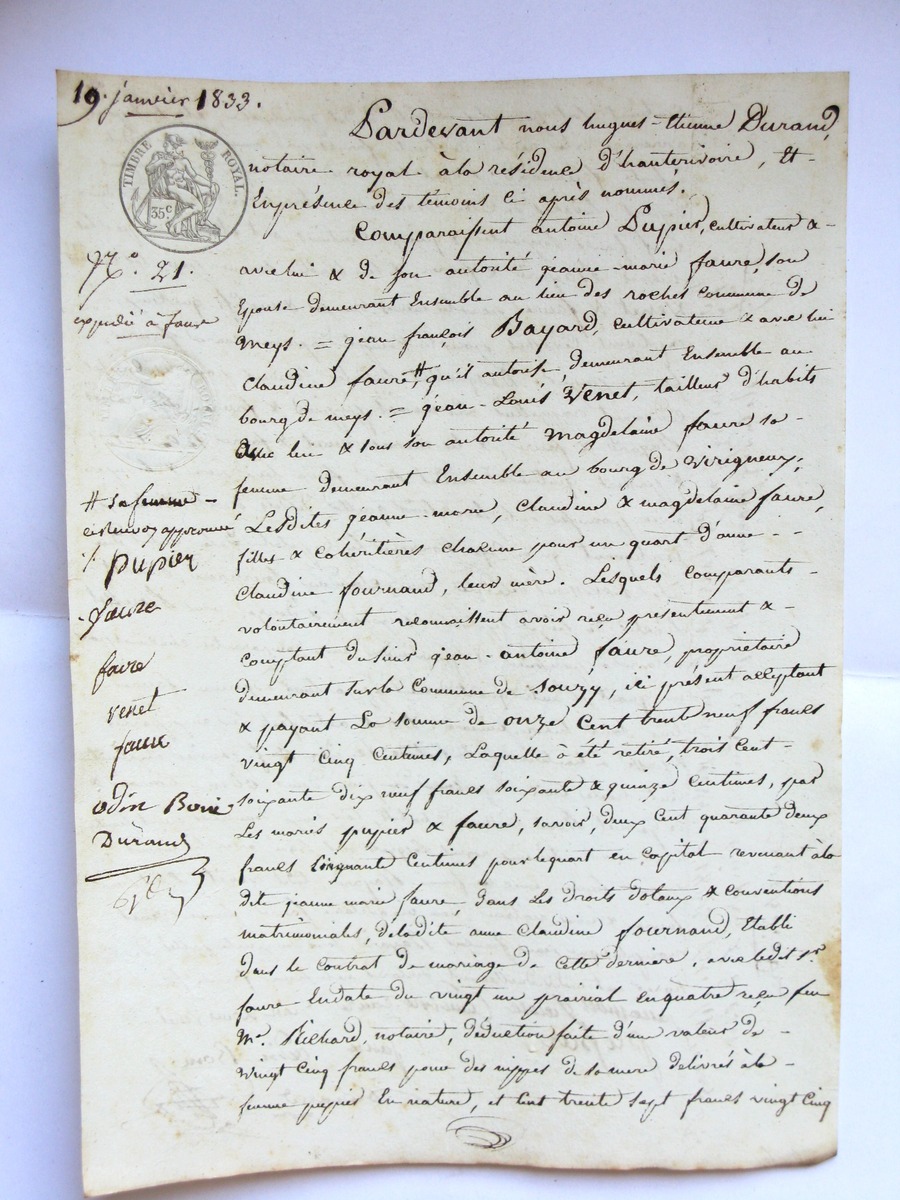 19. janvier 1833.
TIMBRE ROYAL.
35 c
Pardevant nous hugues-Etienne Durand,
notaire royal à la résidence d'hauterivoire, Et
En présence des témoins ci après nommés.
Comparaissent antoine Pupier, cultivateur &
avec lui & de son autorité jeanne-marie faure, son
Epouse demeurant Ensemble au lieu des roches commune de
meys. = jean françois Bayard, cultivateur & avec lui
Claudine faure, # qu'il autorise, demeurant Ensemble au
bourg de meys. = jean-Louis Venet, tailleur d'habits
avec lui & sous son autorité magdelaine faure sa
femme demeurant Ensemble au bourg de virigneux;
Lesdites jeanne-marie, Claudine & magdelaine faure,
filles & cohéritières chacune pour un quart d'anne
Claudine fournand, leur mère. Lesquels comparants
volontairement reconnaissent avoir reçu présentement &
comptant du sieur jean-antoine faure, propriétaire
demeurant sur la Commune de Souzy, ici présent acceptant
& payant La somme de onze Cent trente neuf francs
vingt Cinq Centimes, Laquelle à été retiré, trois Cent
soixante dix neuf francs soixante & quinze Centimes, par
Les mariés pupier & faure, savoir, deux Cent quarante deux
francs Cinquante Centimes pour le quart en capital revenant à la
dite jeanne marie faure, dans Les Droits dotaux & conventions
matrimoniales, de ladite anne Claudine fournand, Etabli
dans le Contrat de mariage de Cette dernière, avec ledit sr
faure En date du vingt un prairial en quatre reçu feu
Me. Richard, notaire, déduction faite d'une valeur de
vingt Cinq francs pour des nippes de sa mere delivrés à la
femme pupier En nature, et Cent trente sept francs vingt Cinq
No. 21.
expédié à faure
# sa femme
ce renvoy approuvé
pupier
faure
favre
venet
faure
odin Bovie
Durand